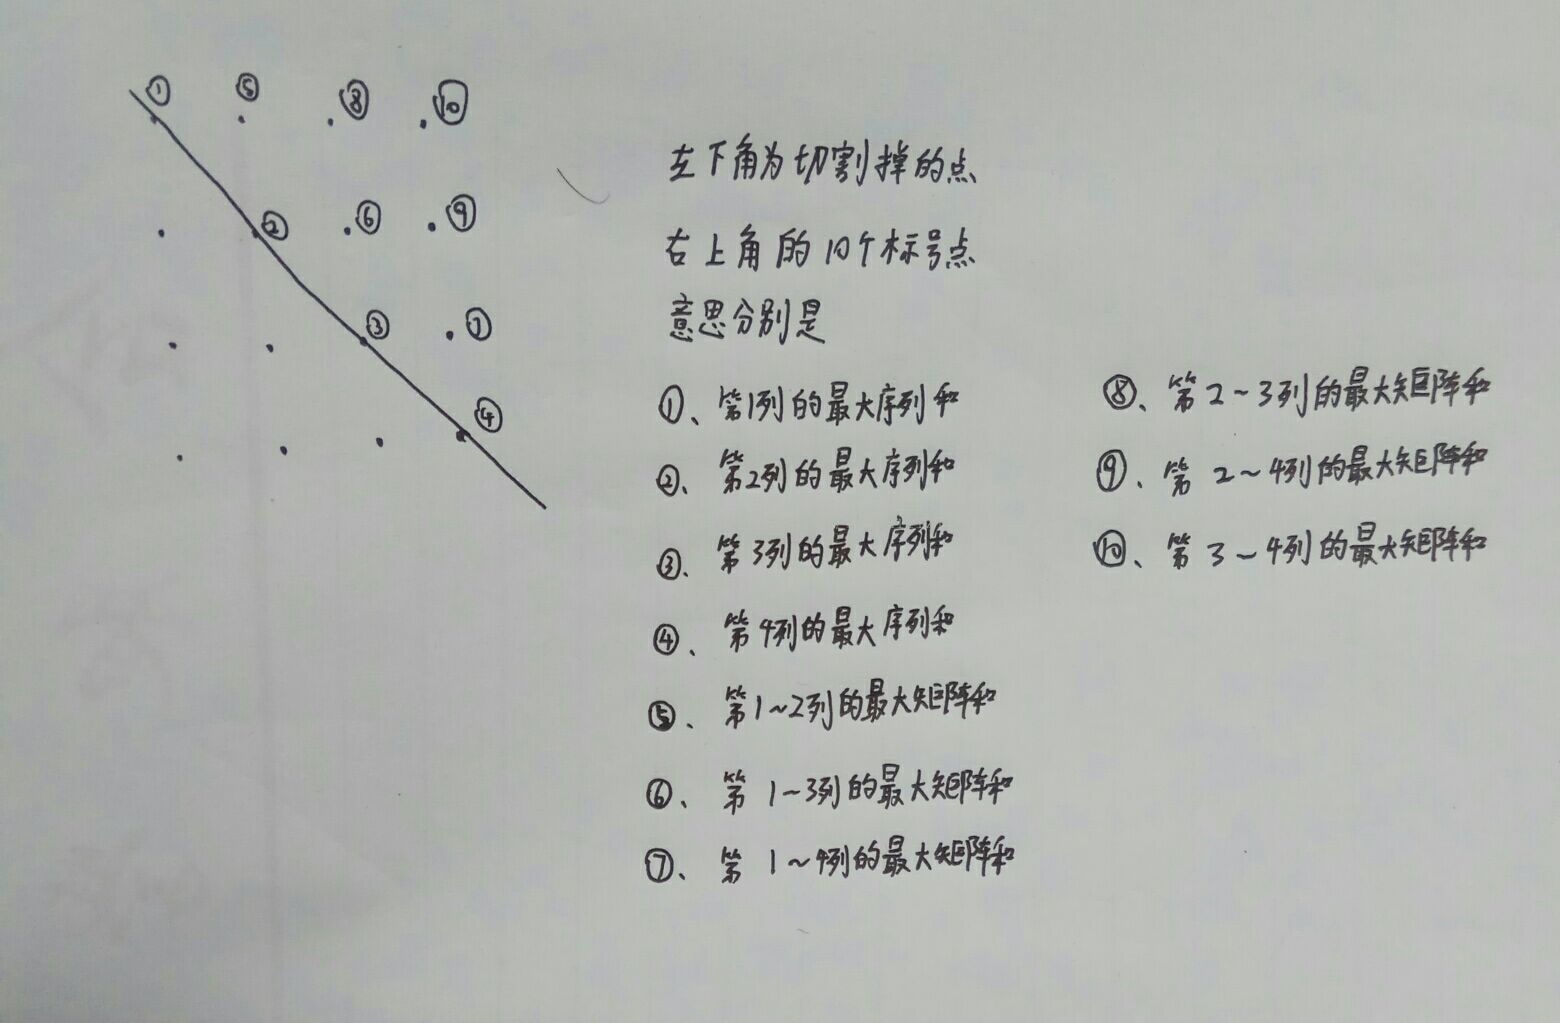 ① ⑤ ⑧ ⑩
② ⑥ ⑨
③ ⑦
④
左下角为切割掉的点
右上角的10个标号点
意思分别是
①、第1列的最大序列和
②、第2列的最大序列和
③、第3列的最大序列和
④、第4列的最大序列和
⑤、第1~2列的最大矩阵和
⑥、第1~3列的最大矩阵和
⑦、第1~4列的最大矩阵和
⑧、第2~3列的最大矩阵和
⑨、第2~4列的最大矩阵和
⑩、第3~4列的最大矩阵和